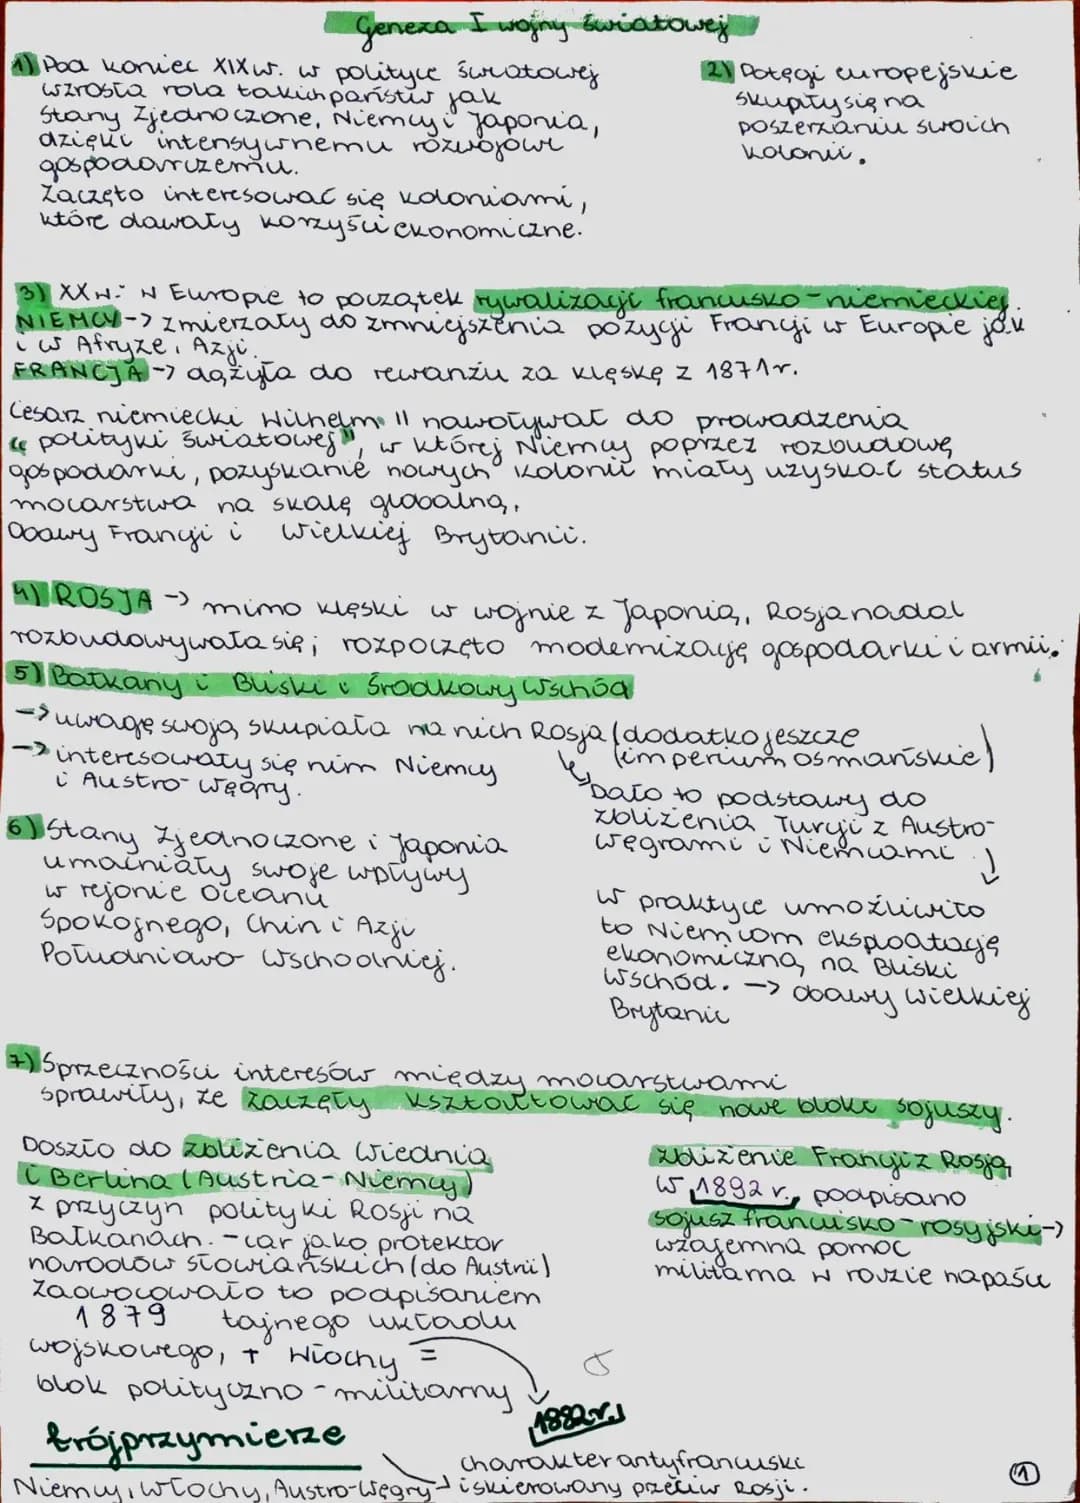 Geneza I wojny światowej
1) Pod koniec XIX w. w polityce światowej
wzrosła rola takich państw jak
Stany Zjednoczone, Niemcy i Japonia,
dzięki intensywnemu rozwojowi
gospodarczemu.
Zaczęto interesować się koloniami,
które dawały korzyści ekonomiczne.
2) Potęgi europejskie
skupiły się na
poszerzaniu swoich
kolonii.
3) XX w. W Europie to początek rywalizacji francusko-niemieckiej.
NIEMCY -> zmierzały do zmniejszenia pozycji Francji w Europie jak
i w Afryze, Azji.
FRANCJA -> dążyła do rewanżu za klęskę z 1871r.
Cesarz niemiecki Wilhelm II nawoływał do prowadzenia
"polityki światowej", w której Niemcy poprzez rozbudowę
gospodarki, pozyskanie nowych kolonii miały uzyskać status
mocarstwa na skalę globalną.
Obawy Francji i Wielkiej Brytanii.
4) ROSJA -> mimo klęski w wojnie z Japonią, Rosja nadal
rozbudowywała się; rozpoczęto modernizację gospodarki i armii.
5) Bałkany i Bliski i Środkowy Wschód
-> uwagę swoją skupiała na nich Rosja (dodatko jeszcze
imperium osmańskie)
-> interesowały się nim Niemcy
i Austro-Węgry.
Dało to podstawy do
zbliżenia Turcji z Austro-
Węgrami i Niemcami.
w praktyce umożliwiło
to Niemcom eksploatację
ekonomiczną na Bliski
Wschód. -> obawy Wielkiej
Brytanii
6) Stany Zjednoczone i Japonia
umacniały swoje wpływy
w rejonie Oceanu
Spokojnego, Chin i Azji
Południowo-Wschodniej.
7) Sprzeczności interesów między mocarstwami
sprawiły, że zaczęły kształtować się nowe bloki sojuszy.
Doszło do zbliżenia Wiednia
i Berlina (Austria-Niemcy)
z przyczyn polityki Rosji na
Bałkanach. - car jako protektor
narodów słowiańskich (do Austrii)
Zaowocowało to podpisaniem
1879 tajnego układu
wojskowego, + Włochy =
blok polityczno-militarny
1882r.
trójprzymierze
Niemcy, Włochy, Austro-Węgry
charakter antyfrancuski
i skierowany przeciw Rosji.
zbliżenie Francji z Rosją
w 1892 r. podpisano
sojusz francusko-rosyjski ->
wzajemna pomoc
militarna w razie napaści
1